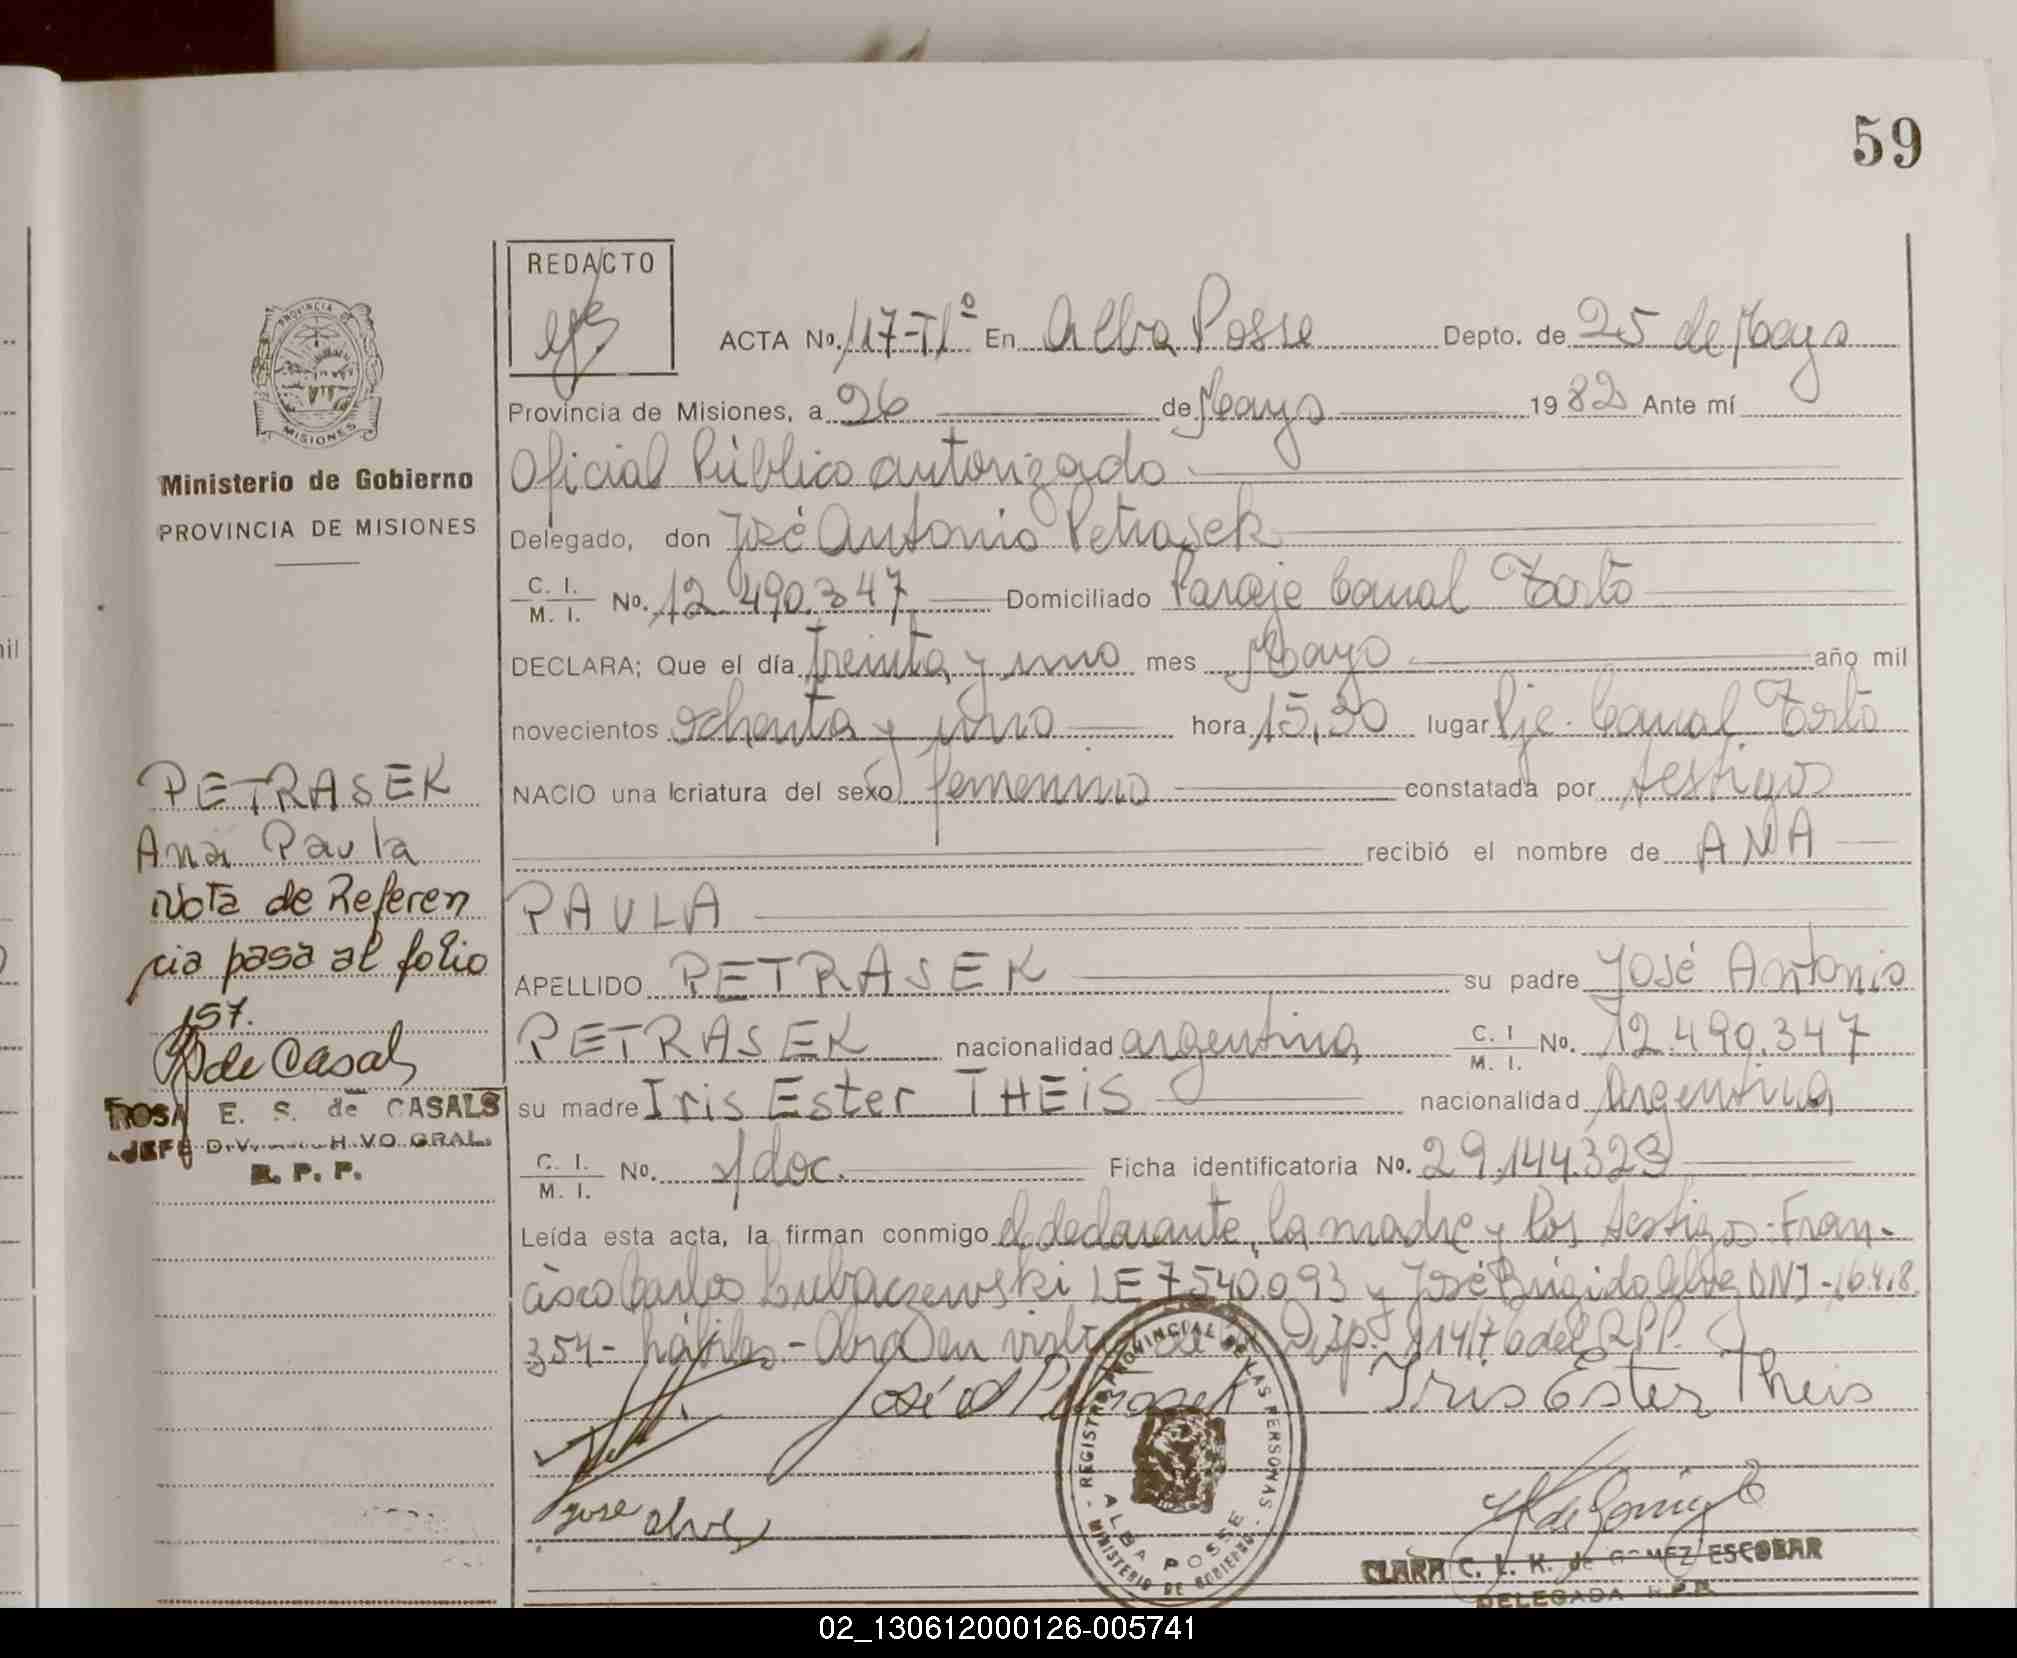 59
REDACTO
ACTA No. 117-Tº En Alba Posse Depto. de 25 de Mayo
Provincia de Misiones, a 26 de Mayo 1982 Ante mí
Oficial Público autorizado
Delegado, don José Antonio Petrasek
C. I. M. I. No. 12.490.347 Domiciliado Paraje Canal Torto
DECLARA; Que el día treinta y uno mes Mayo año mil
novecientos ochenta y uno hora 15,30 lugar Pje. Canal Torto
NACIO una criatura del sexo femenino constatada por testigos
recibió el nombre de ANA
PAULA
APELLIDO PETRASEK su padre José Antonio
PETRASEK nacionalidad argentina C. I M. I. No. 12.490.347
su madre Iris Ester THEIS nacionalidad Argentina
C. I. M. I. No. s/doc. Ficha identificatoria No. 29.144.323
Leída esta acta, la firman conmigo el declarante, la madre y los testigos: Fran-
cisco Carlos LE 7.540.093 y José Brígido DNI-
354- hábiles.- Disp. 114/76 del RPP.
José A Petrasek Iris Ester Theis
jose alves
REGISTRO PROVINCIAL DE LAS PERSONAS
ALBA POSSE
MINISTERIO DE GOBIERNO
CLARA C. L. K. de GOMEZ ESCOBAR
DELEGADA R.P.P.
PROVINCIA DE
MISIONES
Ministerio de Gobierno
PROVINCIA DE MISIONES
PETRASEK
Ana Paula
Nota de Referen
cia pasa al folio
157.
de Casals
ROSA E. S. de CASALS
JEFE GRAL.
R. P. P.
02_130612000126-005741